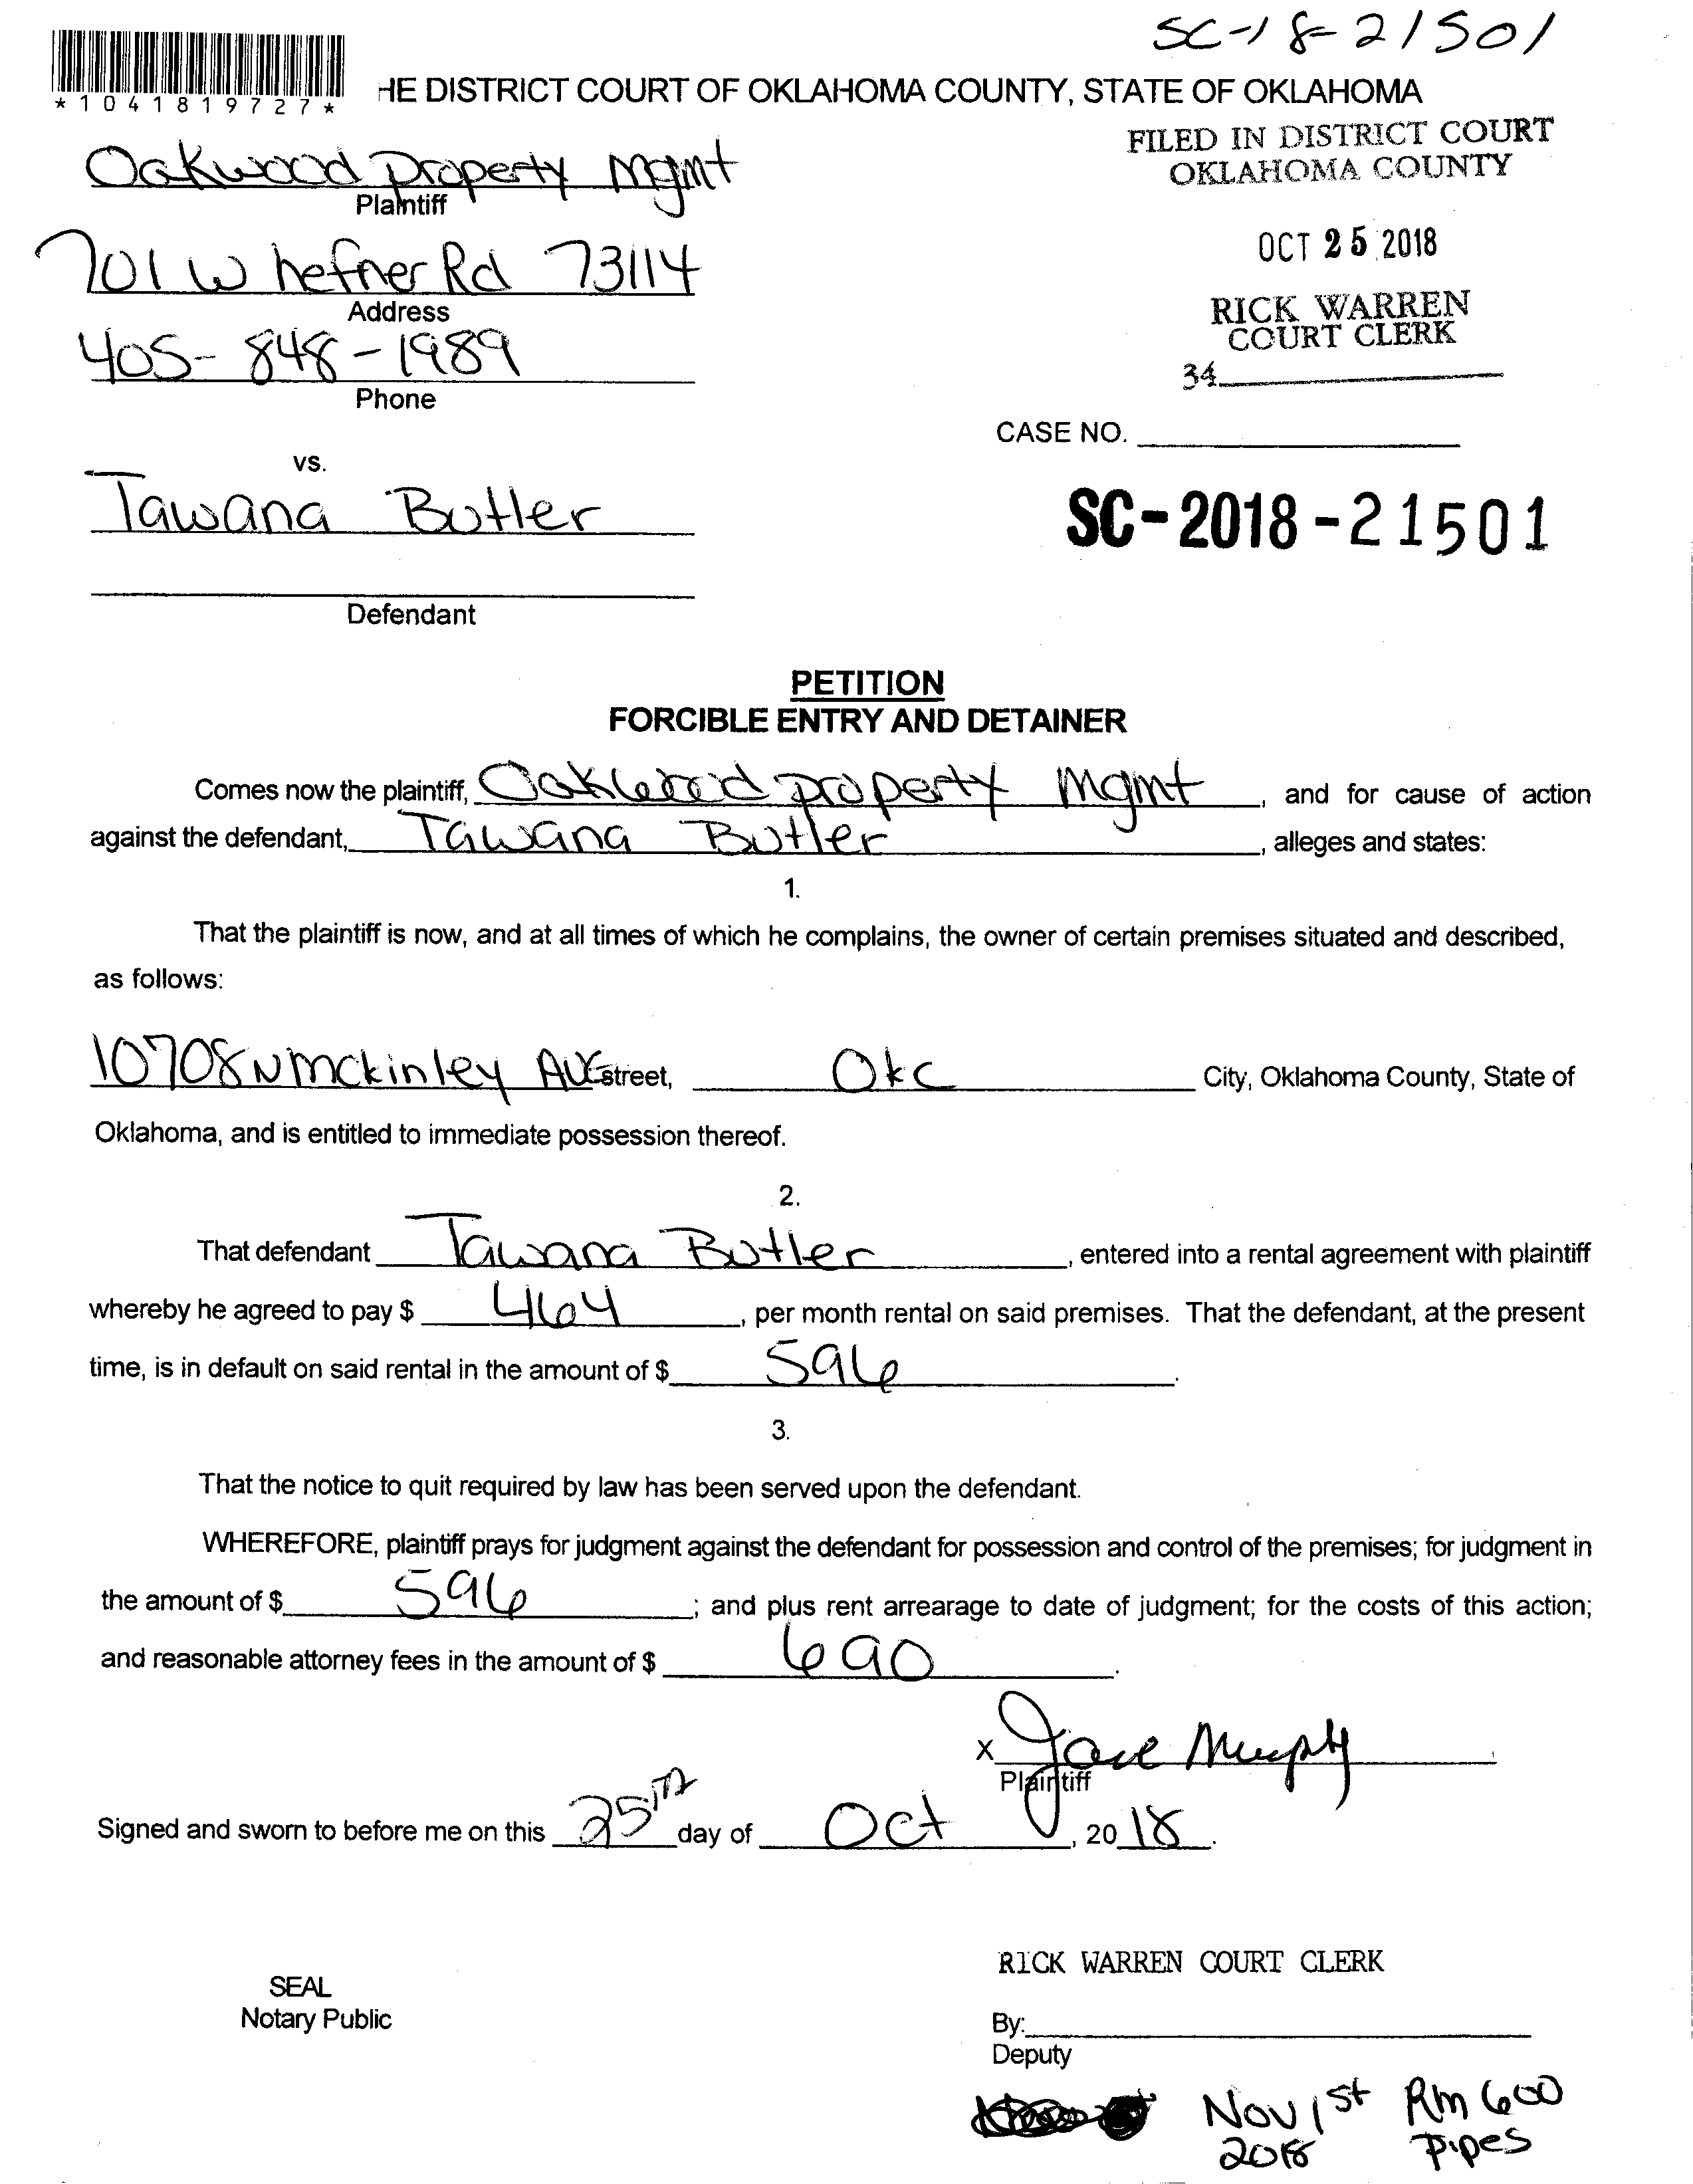 SC-18-21501
*1041819727*
HE DISTRICT COURT OF OKLAHOMA COUNTY, STATE OF OKLAHOMA
FILED IN DISTRICT COURT
OKLAHOMA COUNTY
Oakwood Property Mgmt
Plaintiff
OCT 25 2018
701 W hefner Rd 73114
Address
RICK WARREN
COURT CLERK
405-848-1989
Phone
34
CASE NO.
vs.
Tawana Butler
SC-2018-21501
Defendant
PETITION
FORCIBLE ENTRY AND DETAINER
Comes now the plaintiff, Oakwood property Mgmt, and for cause of action
against the defendant, Tawana Butler, alleges and states:
1.
That the plaintiff is now, and at all times of which he complains, the owner of certain premises situated and described,
as follows:
10708 N Mckinley Ave street, Okc City, Oklahoma County, State of
Oklahoma, and is entitled to immediate possession thereof.
2.
That defendant Tawana Butler, entered into a rental agreement with plaintiff
whereby he agreed to pay $ 464, per month rental on said premises. That the defendant, at the present
time, is in default on said rental in the amount of $ 596.
3.
That the notice to quit required by law has been served upon the defendant.
WHEREFORE, plaintiff prays for judgment against the defendant for possession and control of the premises; for judgment in
the amount of $ 596; and plus rent arrearage to date of judgment; for the costs of this action;
and reasonable attorney fees in the amount of $ 690.
X Jane Murphy
Plaintiff
Signed and sworn to before me on this 25th day of Oct, 2018.
RICK WARREN COURT CLERK
SEAL
Notary Public
By:
Deputy
Nov 1st Rm 600
2018 Pipes